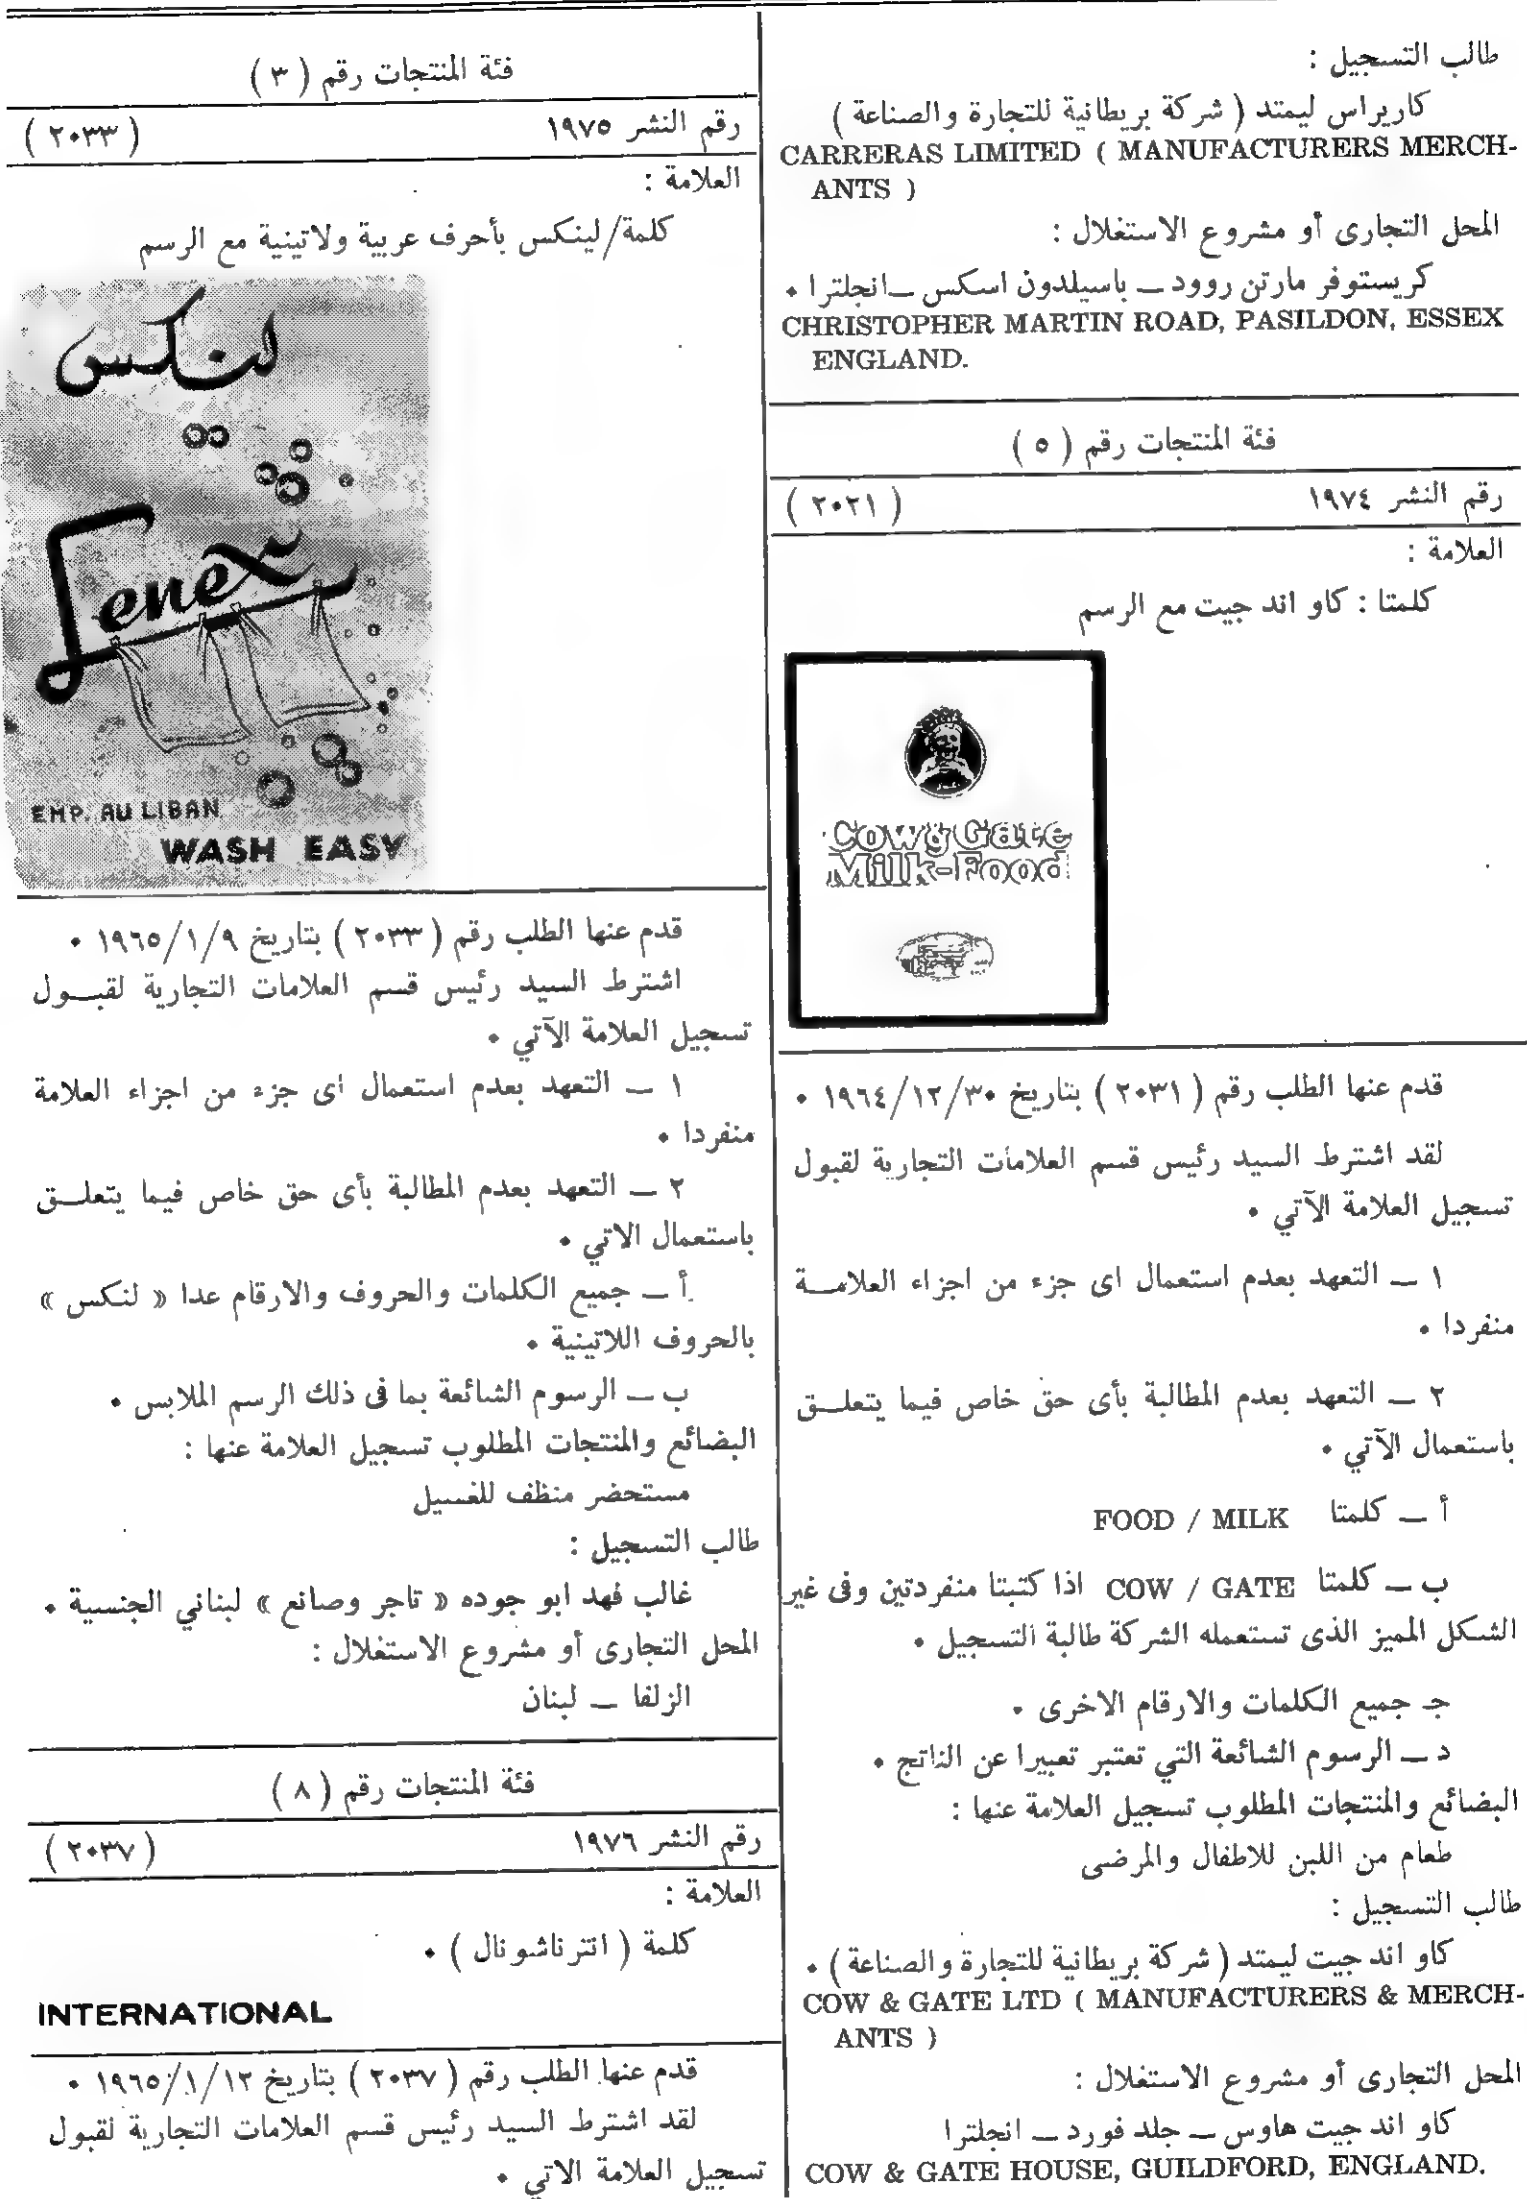 طالب التسجيل :
كاريراس ليمتد ( شركة بريطانية للتجارة والصناعة )
CARRERAS LIMITED ( MANUFACTURERS MERCH-
ANTS )
المحل التجارى أو مشروع الاستغلال :
كريستوفر مارتن روود ــ باسيلدون اسكس ــ انجلترا ٠
CHRISTOPHER MARTIN ROAD, PASILDON, ESSEX
ENGLAND.
فئة المنتجات رقم ( ٥ )
رقم النشر ١٩٧٤ ( ٢٠٢١ )
العلامة :
كلمتا : كاو اند جيت مع الرسم
Cow & Gate
Milk-Food
قدم عنها الطلب رقم ( ٢٠٣١ ) بتاريخ ١٩٦٤/١٢/٣٠ ٠
لقد اشترط السيد رئيس قسم العلامات التجارية لقبول
تسجيل العلامة الآتي ٠
١ ــ التعهد بعدم استعمال اى جزء من اجزاء العلامــة
منفردا ٠
٢ ــ التعهد بعدم المطالبة بأى حق خاص فيما يتعلــق
باستعمال الآتي ٠
أ ــ كلمتا FOOD / MILK
ب ــ كلمتا COW / GATE اذا كتبتا منفردتين وفى غير
الشكل المميز الذى تستعمله الشركة طالبة التسجيل ٠
جـ جميع الكلمات والارقام الاخرى ٠
د ــ الرسوم الشائعة التي تعتبر تعبيرا عن الناتج ٠
البضائع والمنتجات المطلوب تسجيل العلامة عنها :
طعام من اللبن للاطفال والمرضى
طالب التسجيل :
كاو اند جيت ليمتد ( شركة بريطانية للتجارة والصناعة ) ٠
COW & GATE LTD ( MANUFACTURERS & MERCH-
ANTS )
المحل التجارى أو مشروع الاستغلال :
كاو اند جيت هاوس ــ جلد فورد ــ انجلترا
COW & GATE HOUSE, GUILDFORD, ENGLAND.
فئة المنتجات رقم ( ٣ )
رقم النشر ١٩٧٥ ( ٢٠٣٣ )
العلامة :
كلمة/لينكس بأحرف عربية ولاتينية مع الرسم
لنكس
Lenex
EMP. AU LIBAN
WASH EASY
قدم عنها الطلب رقم ( ٢٠٣٣ ) بتاريخ ١٩٦٥/١/٩ ٠
اشترط السيد رئيس قسم العلامات التجارية لقبــول
تسجيل العلامة الآتي ٠
١ ــ التعهد بعدم استعمال اى جزء من اجزاء العلامة
منفردا ٠
٢ ــ التعهد بعدم المطالبة بأى حق خاص فيما يتعلــق
باستعمال الاتي ٠
أ ــ جميع الكلمات والحروف والارقام عدا « لنكس »
بالحروف اللاتينية ٠
ب ــ الرسوم الشائعة بما فى ذلك الرسم الملابس ٠
البضائع والمنتجات المطلوب تسجيل العلامة عنها :
مستحضر منظف للغسيل
طالب التسجيل :
غالب فهد ابو جوده « تاجر وصانع » لبناني الجنسية ٠
المحل التجارى أو مشروع الاستغلال :
الزلفا ــ لبنان
فئة المنتجات رقم ( ٨ )
رقم النشر ١٩٧٦ ( ٢٠٣٧ )
العلامة :
كلمة ( انترناشونال ) ٠
INTERNATIONAL
قدم عنها الطلب رقم ( ٢٠٣٧ ) بتاريخ ١٩٦٥/١/١٢ ٠
لقد اشترط السيد رئيس قسم العلامات التجارية لقبول
تسجيل العلامة الاتي ٠